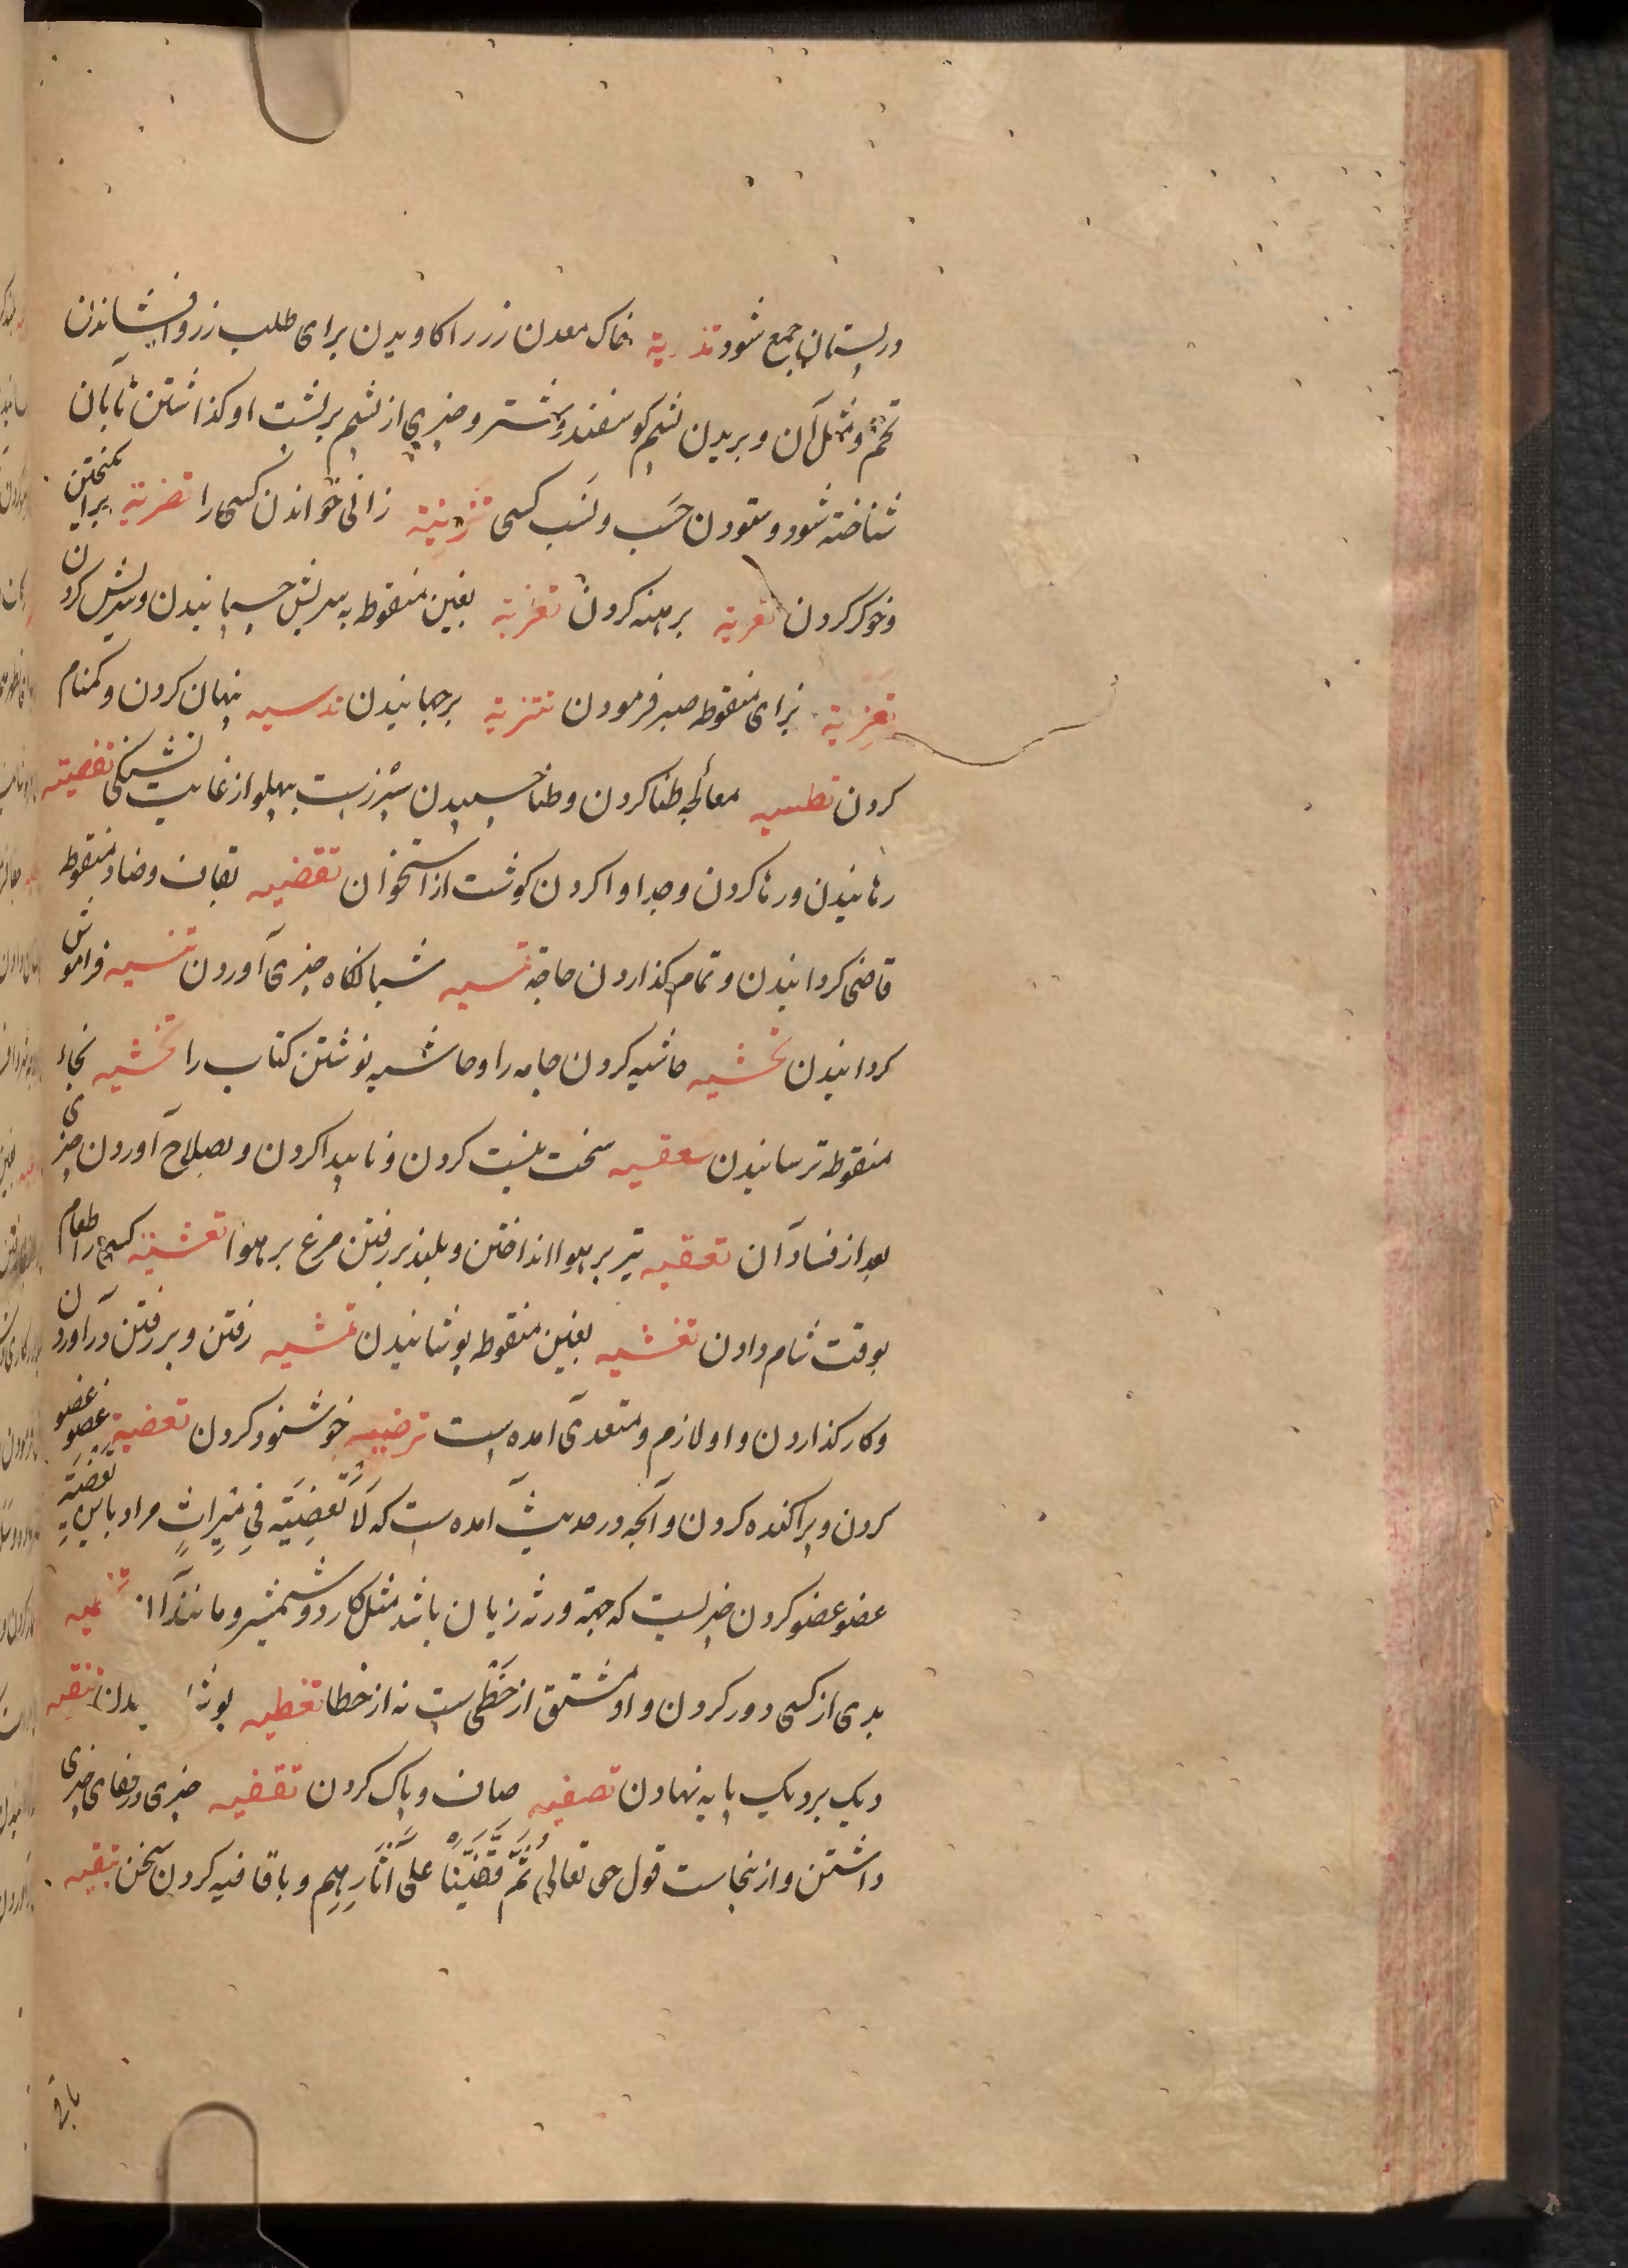 در پستان جمع شود تذریة خاک معدن زر را کاویدن برای طلب زر و افشاندن
تخم و مثل آن و بریدن پشم کوسفند و شتر و چیزی از پشم بر پشت او کذاشتن تا بآن
شناخته شود و ستودن حَسَب و نَسَب کسی تزنیة زانی خواندن کسی را تضریة برانکیختن
و خوکر کردن تعریة برهنه کردن تغریة بغین منقوطه بسریش چسپانیدن و سریش کردن
تعزیة بزای منقوطه صبر فرمودن تنزیة برجهانیدن تدسیه پنهان کردن و کمنام
کردن تطسیه معالجه طنا کردن و طنا چسپیدن سپرزست بپهلو از غایت تشنکی تفصیته
رهانیدن و رها کردن و جدا وا کردن کوشت از استخوان تقضیه بقاف و ضاد منقوطه
قاضی کردانیدن و تمام کذاردن حاجة تمسیه شبانکاه چیزی آوردن تنسیه فراموش
کردانیدن تحشیه حاشیه کردن جامه را و حاشیه نوشتن کتاب را تخشیه بخاء
منقوطه ترسانیدن تعفیه سخت نیست کردن و ناپیدا کردن و بصلاح آوردن چیزی
بعد از فساد آن تعقیه تیر بر هوا انداختن و بلند بر رفتن مرغ بر هوا تعشیته کسی را طعام
بوقت شام دادن تغشیه بغین منقوطه پوشانیدن تمشیه رفتن و بر رفتن در آوردن
و کار کذاردن و او لازم و متعدی آمده است ترضیه خوشنود کردن تعضیة عضو عضو
کردن و پراکنده کردن و آنچه در حدیث آمده است که لَا تَعْضِیَةَ فِي مِیرَاثٍ مراد باین تعضیة
عضو عضو کردن چیزیست که جهة ورثه زیان باشد مثل کارد و شمشیر و مانند آن
بدی از کسی دور کردن و او مشتق از خَطَی ست نه از خطا تغطیه
دیک بر دیک پایه نهادن تصفیه صاف و پاک کردن تقفیه چیزی در قفای چیزی
داشتن و از ینجاست قول حق تعالی ثُمَّ قَفَّیْنَا عَلَی آثَارِهِم و با قافیه کردن سخن تبقیه
باقی